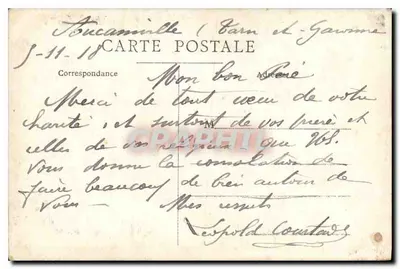 Aucamville (Tarn et-Garonne
5-11-18
CARTE POSTALE
Correspondance
Mon bon
Merci de tout cœur de votre
charité, et surtout de vos et
celles de vos que
vous donne la consolation de
faire beaucoup de bien autour de
vous — Mes respects
Leopold